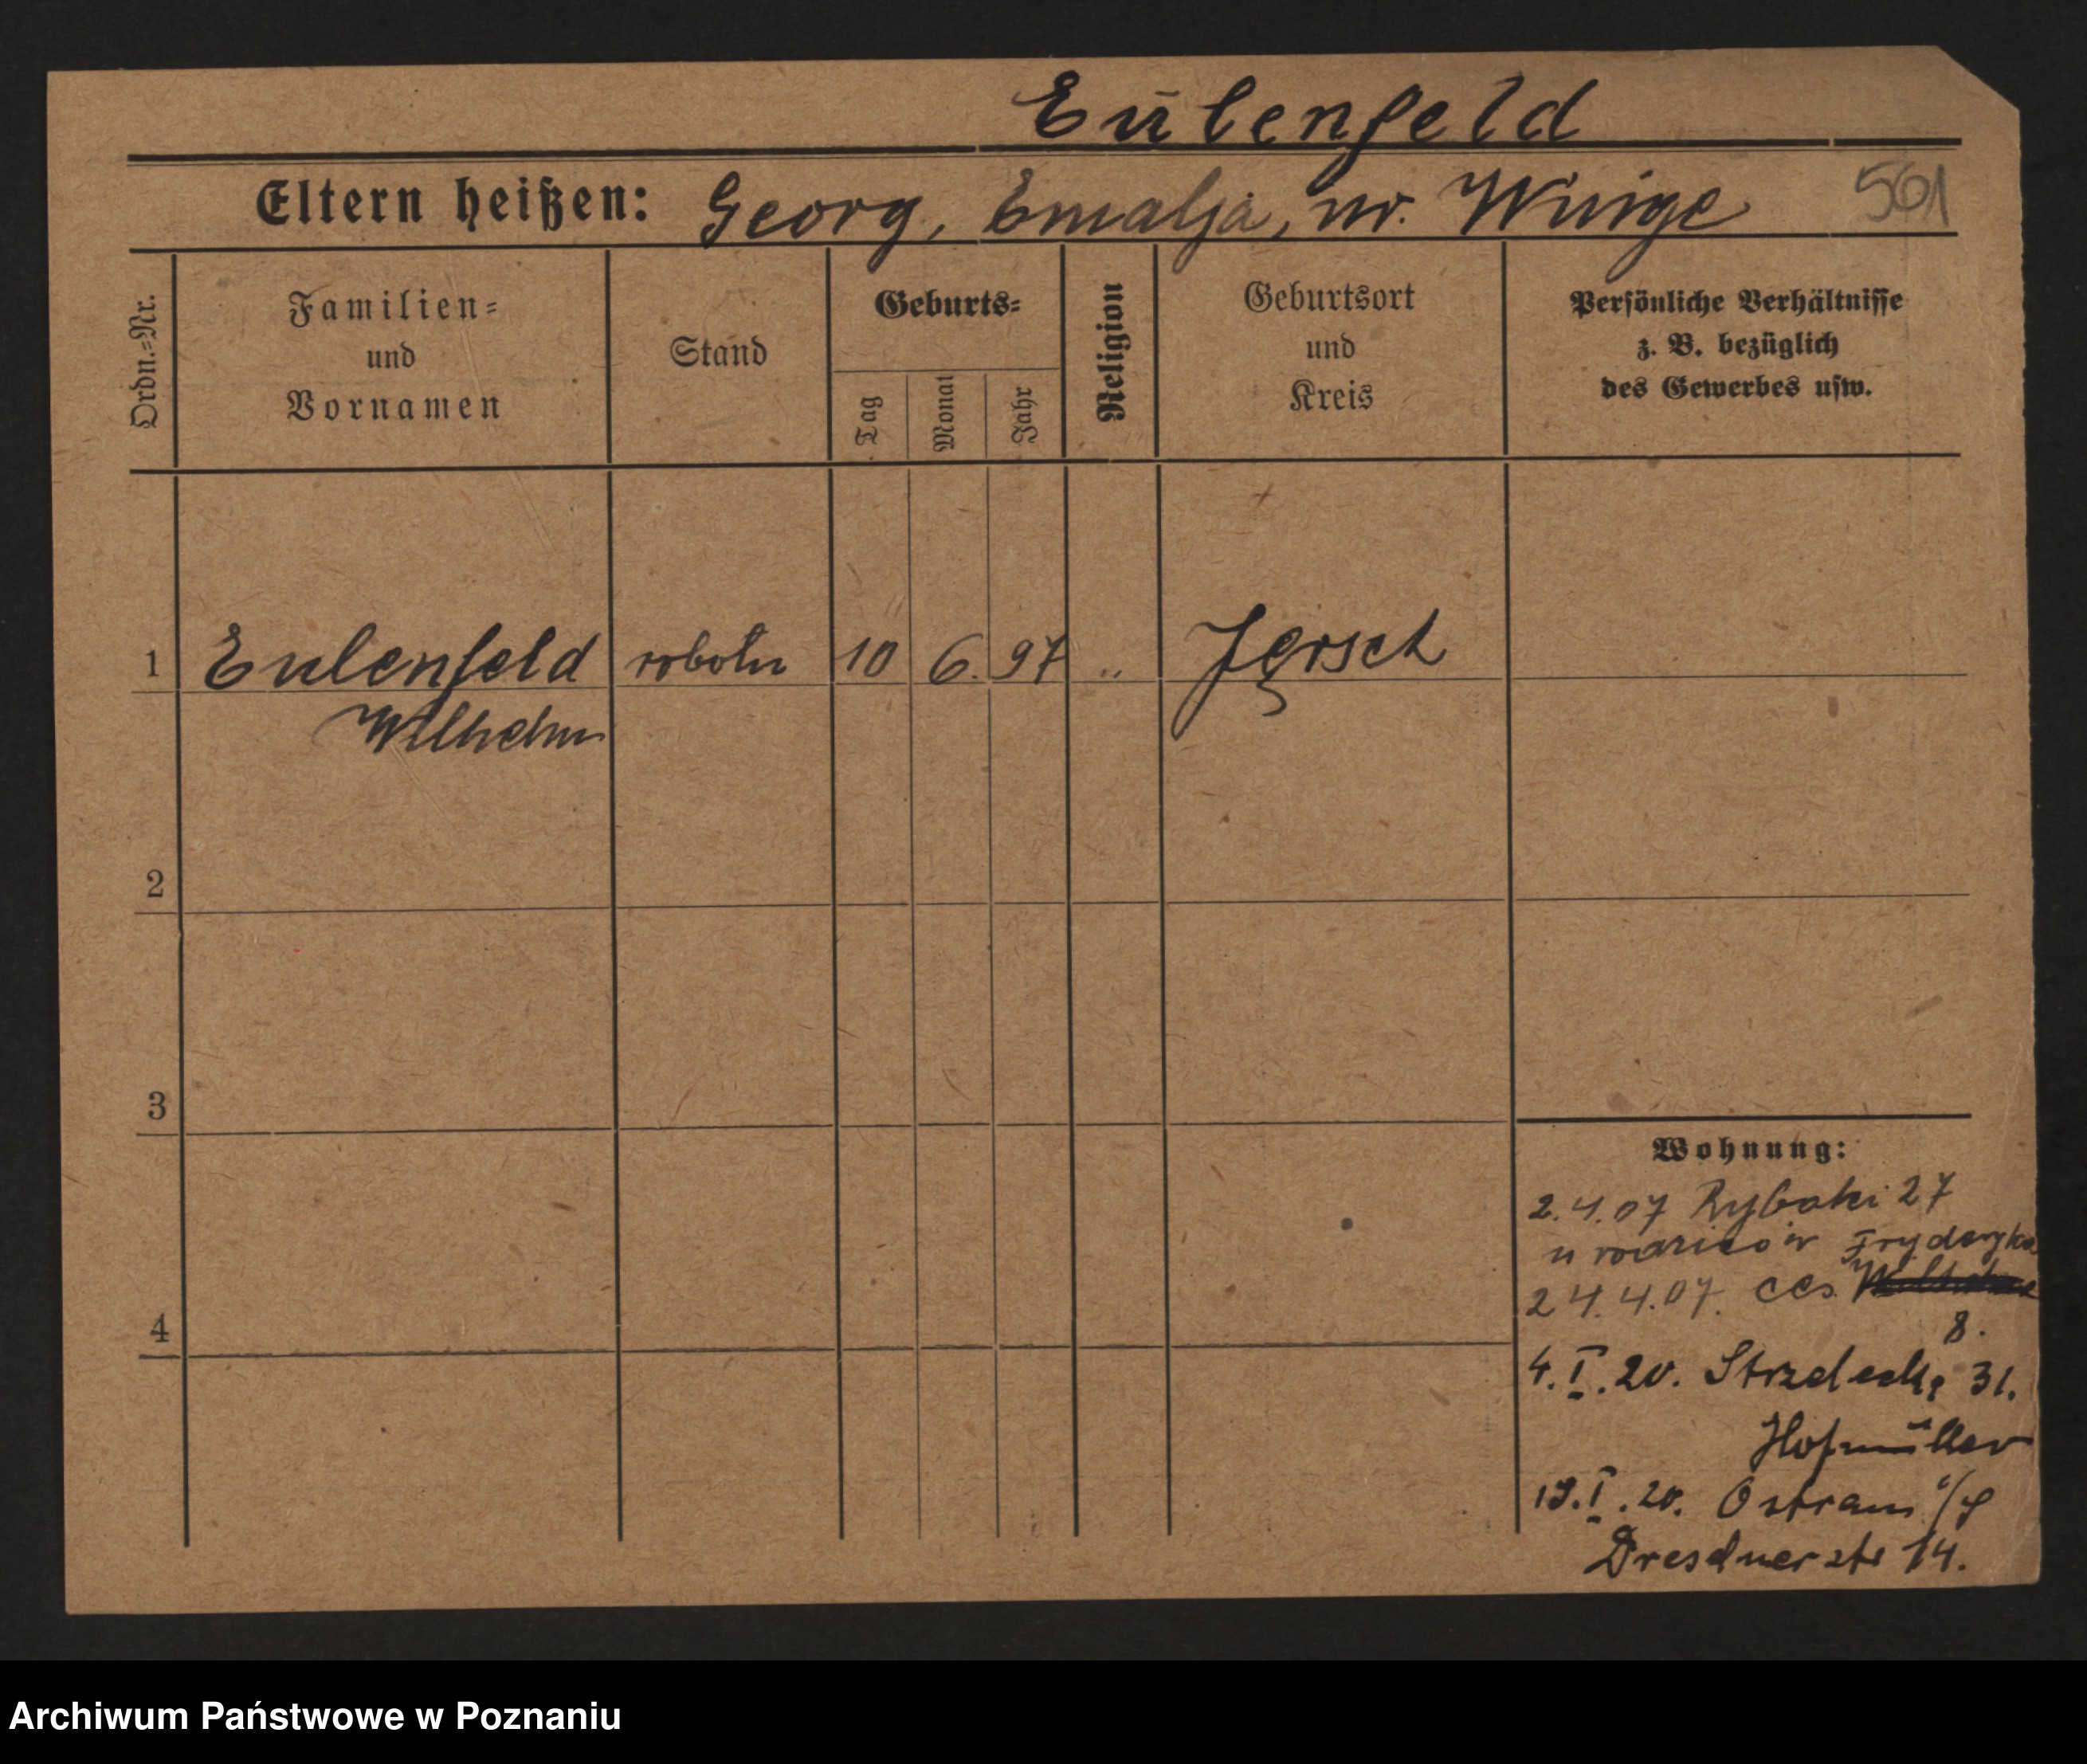 Eulenfeld
Eltern heißen: Georg, Emalja, ur. Winige 561
Ordn.=Nr.
Familien=
und
Vornamen
Stand
Geburts=
Tag
Monat
Jahr
Religion
Geburtsort
und
Kreis
Persönliche Verhältnisse
z. B. bezüglich
des Gewerbes usw.
1 Eulenfeld robotn 10 6. 97 " Jersch
Wilhelm
2
3
4
Wohnung:
2.4.07 Rybaki 27
u rodziców Fryderyka
24.4.07. ces.
8.
4.I.20. Strzelecka 31.
Hofmüller
19.I.20. Ostrau i/S
Dresdnerstr 14.
Archiwum Państwowe w Poznaniu